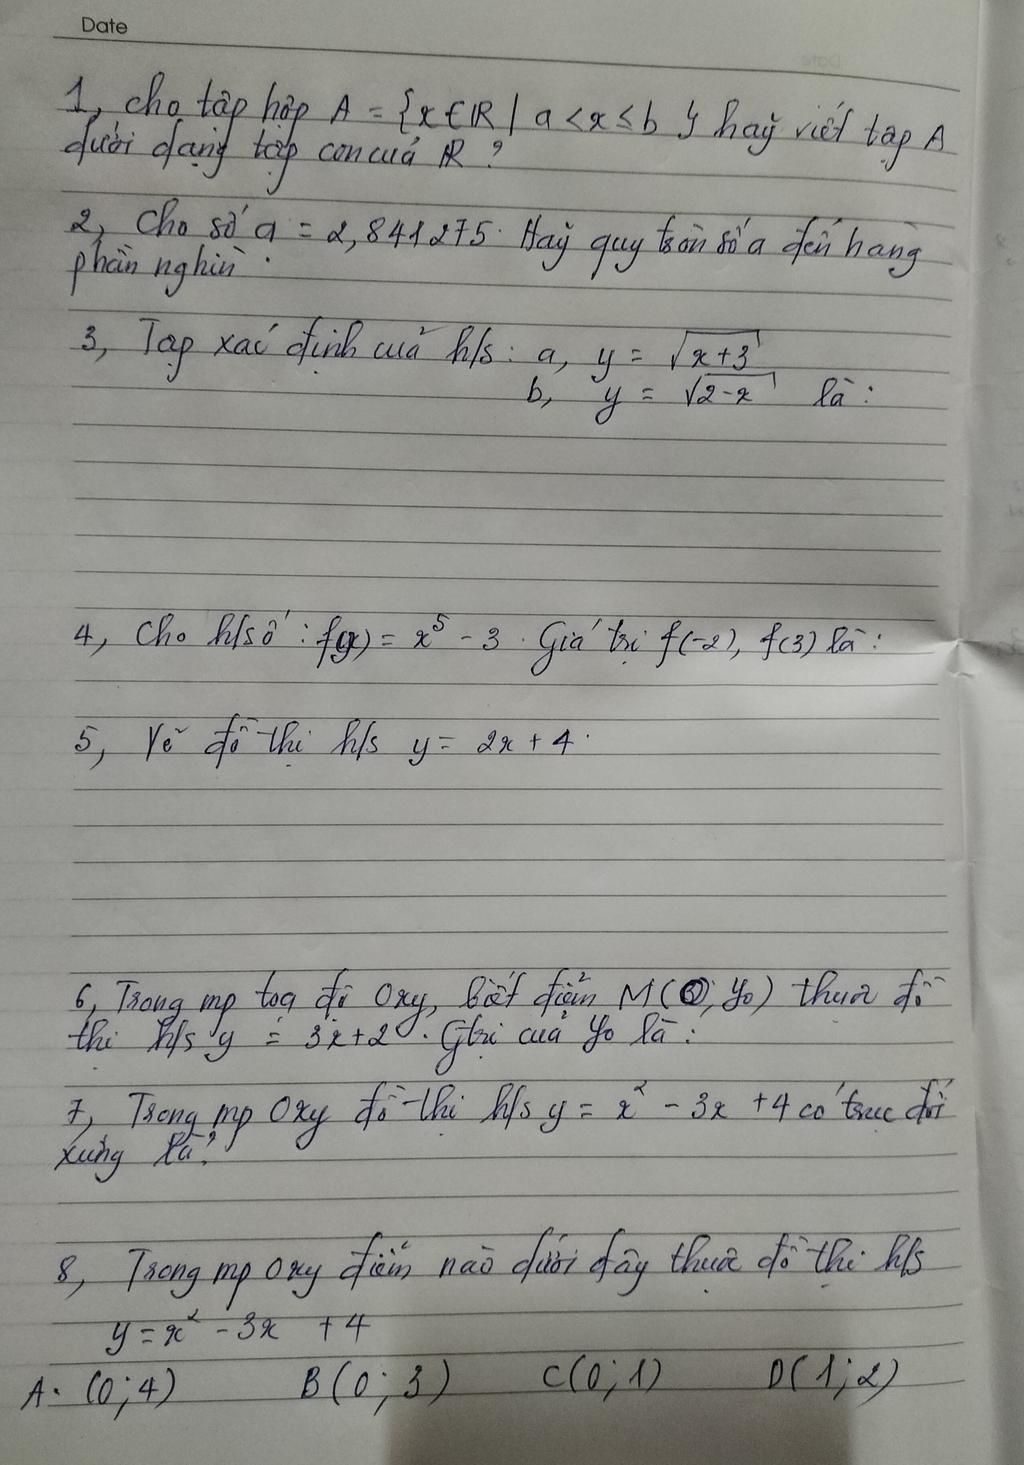 Date
1, cho tập hợp A = {x ∈ R / a < x ≤ b } hãy viết tập A
dưới dạng tập con của R ?
2, Cho số a = 2,841275. Hãy quy tròn số a đến hàng
phần nghìn.
3, Tập xác định của h/s : a, y = √x+3
b, y = √2-x là :
4, Cho h/số : f(x) = x⁵ - 3. Giá trị f(-2), f(3) là :
5, Vẽ đồ thị h/s y = 2x + 4.
6, Trong mp toạ độ Oxy, biết điểm M(0; y₀) thuộc đồ
thị h/s y = 3x+2. Gtrị của y₀ là :
7, Trong mp Oxy đồ thị h/s y = x² - 3x + 4 có trục đối
xứng là?
8, Trong mp Oxy điểm nào dưới đây thuộc đồ thị h/s
y = x² - 3x + 4
A. (0; 4) B(0; 3) C(0; 1) D(1; 2)